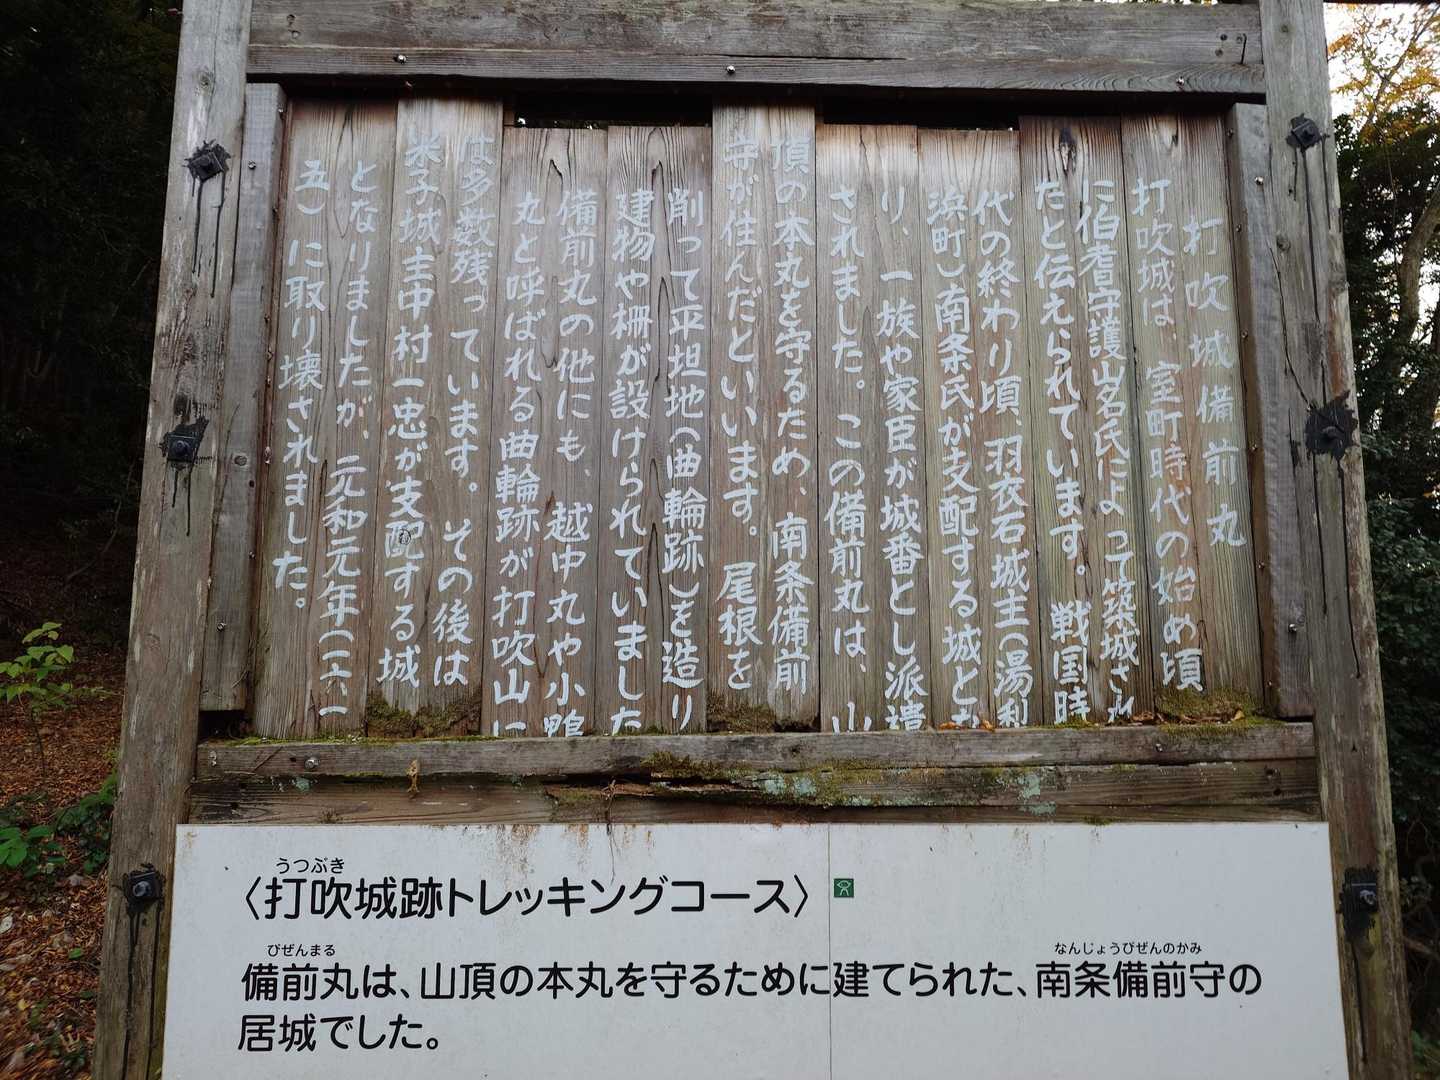 打吹城備前丸
打吹城は、室町時代の始め頃
に伯耆守護山名氏によって築城され
たと伝えられています。戦国時
代の終わり頃、羽衣石城主(湯梨
浜町)南条氏が支配する城とな
り、一族や家臣が城番とし派遣
されました。この備前丸は、山
頂の本丸を守るため、南条備前
守が住んだといいます。尾根を
削って平坦地(曲輪跡)を造り
建物や柵が設けられていました
備前丸の他にも、越中丸や小鴨
丸と呼ばれる曲輪跡が打吹山に
は多数残っています。その後は
米子城主中村一忠が支配する城
となりましたが、元和元年(一六一
五)に取り壊されました。
うつぶき
〈打吹城跡トレッキングコース〉
びぜんまる なんじょうびぜんのかみ
備前丸は、山頂の本丸を守るために建てられた、南条備前守の
居城でした。